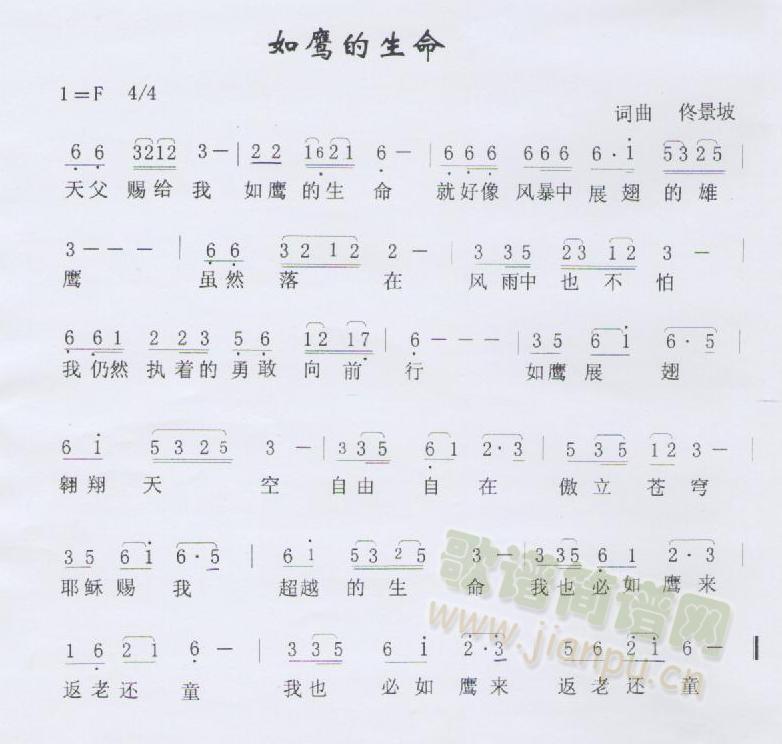 如鹰的生命
1=F 4/4
词曲 佟景坡
6 6 3212 3 - | 2 2 1621 6 - | 6 6 6 6 6 6 6 · i 5 3 2 5 |
天父 赐给 我 如鹰 的生 命 就好像 风暴中 展翅 的雄
3 - - - | 6 6 3 2 1 2 2 - | 3 3 5 2 3 1 2 3 - |
鹰 虽然 落 在 风 雨中 也 不 怕
6 6 1 2 2 3 5 6 12 17 | 6 - - - | 3 5 6 i 6 · 5 |
我 仍然 执着的 勇敢 向 前 行 如鹰 展 翅
6 i 5 3 2 5 3 - | 3 3 5 6 1 2 · 3 | 5 3 5 1 2 3 - |
翱翔 天 空 自由 自 在 傲立 苍 穹
3 5 6 i 6 · 5 | 6 i 5 3 2 5 3 - | 3 3 5 6 1 2 · 3 |
耶稣 赐 我 超越 的 生 命 我也 必如 鹰 来
1 6 2 1 6 - | 3 3 5 6 i 2 · 3 | 5 6 2 i 6 - ‖
返老 还 童 我也 必如 鹰来 返老 还 童
歌谱简谱网
www.jianpu.cn